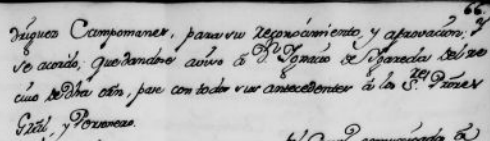 66.
driguez Campomanes, para su reconocimiento, y aprovacion; y
se acordo, que dandose aviso á Dn Ignacio de Ygareda del re
civo de dha orn, pase con todos sus antecedentes á los Sres Prores
Gral, y Personero.
comunicada á